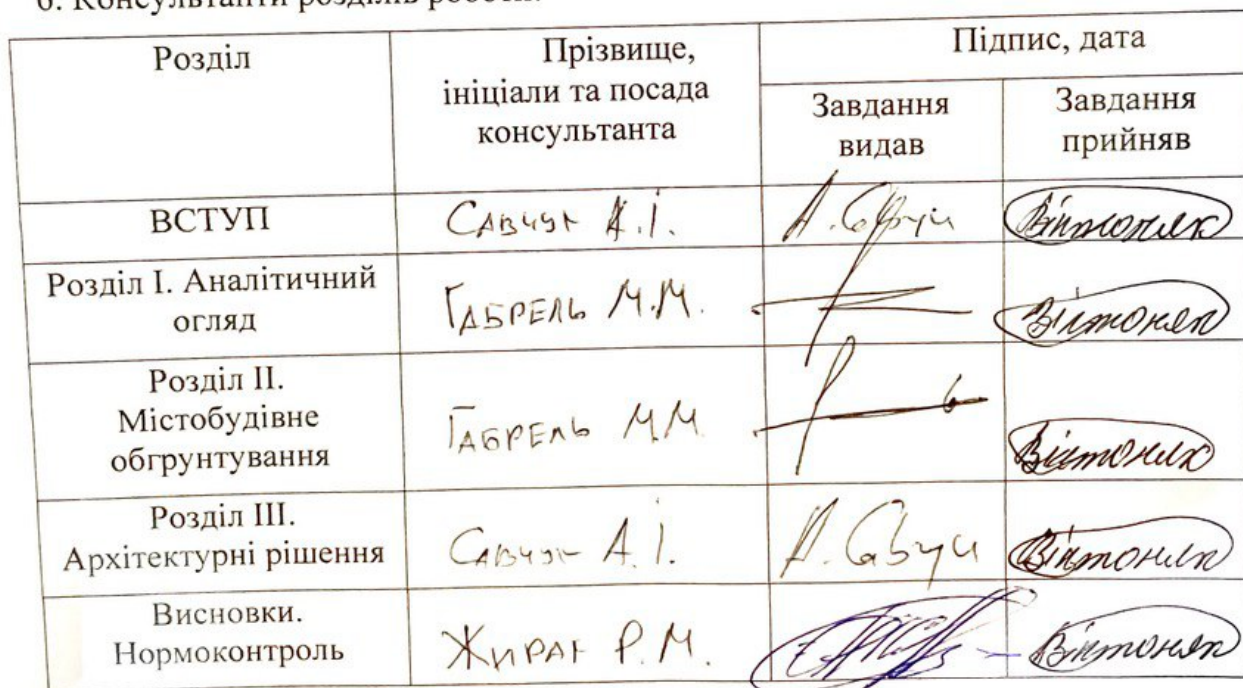 6. Консультанти розділів роботи:
Розділ
Прізвище,
ініціали та посада
консультанта
Підпис, дата
Завдання
видав
Завдання
прийняв
ВСТУП
Савчук А.І.
А. Савчук
Вінтоняк
Розділ І. Аналітичний
огляд
Габрель М.М.
Вінтоняк
Розділ ІІ.
Містобудівне
обгрунтування
Габрель М.М.
Вінтоняк
Розділ ІІІ.
Архітектурні рішення
Савчук А.І.
А. Савчук
Вінтоняк
Висновки.
Нормоконтроль
Р.М.
Вінтоняк